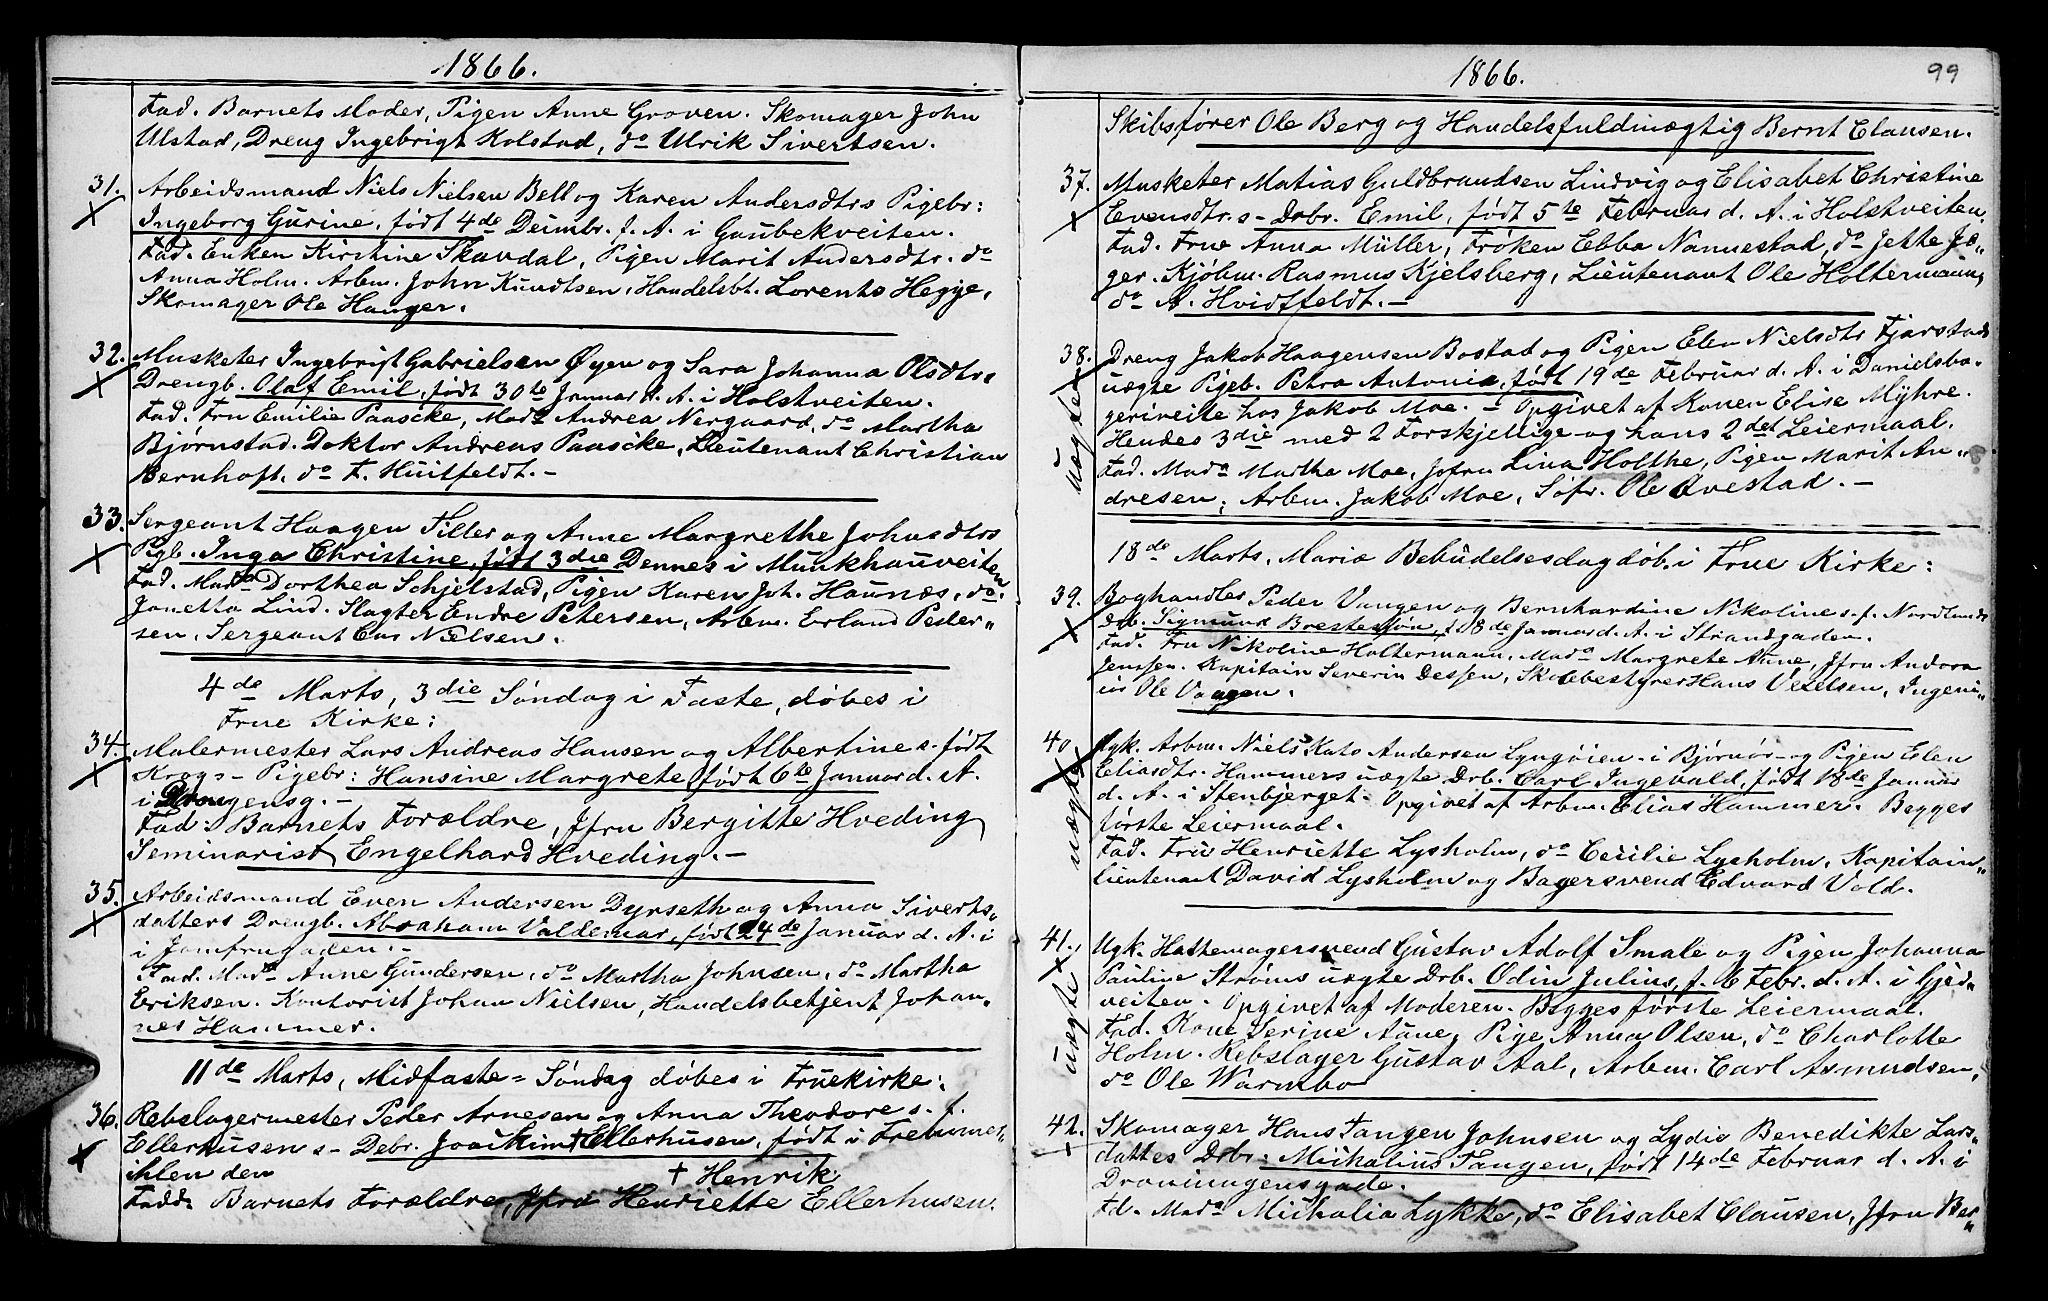 1866.
Fad. Barnets Moder, Pigen Anne Groven. Skomager John
Ulstad, Dreng Ingebrigt Kolstad, do Ulrik Sivertsen.
31. Arbeidsmand Niels Nielsen Bell og Karen Andersdtrs Pigebr:
Ingeborg Gurine, født 4de Deimbr. f. A. i Gaubekveiten.
Fad. Enken Kirstine Skavdal, Pigen Marit Andersdtr. do
Anna Holm. Arbm. John Knudtsen, Handelsbt. Lorents Hegge,
Skomager Ole Hauger.
32. Musketer Ingebrigt Gabrielsen Øyen og Sara Johanna Olsdtrs
Drengb. Olaf Emil, født 30te Januar d. A. i Holstveiten.
Fad. Fru Emilie Paascke, Mada Andrea Nergaard, do Martha
Bjørnstad. Doktor Andreas Paascke, Lieutenant Christian
Bernhoft, do F. Huitfeldt. -
33. Sergeant Haagen Tiller og Anne Margrethe Johnsdtrs
Pigb. Inga Christine, født 3die Dennes i Munkhauveiten
Fad. Mada Dorthea Schjelstad, Pigen Karen Joh. Haunæs, do.
Janetta Lind. Slagter Endre Petersen, Arbm. Erland Peder„
sen, Sergeant Nielsen.
4de Marts, 3die Søndag i Faste, døbes i
Frue Kirke:
34. Malermester Lars Andreas Hansen og Albertine s. født
Krogs - Pigebr: Hansine Margrete, født 6te Januar d. A.
i Dronngensg. -
Fad: Barnets Forældre, Jfru Bergitte Hveding
Seminarist Engelhard Hveding. -
35. Arbeidsmand Even Andersen Dyrseth og Anna Siverts„
datters Drengb. Abraham Valdemar, født 24de Januar d. A. i
i Jomfrugaden. -
Fad. Mada Anne Gundersen, do Martha Johnsen, do Martha
Eriksen. Kontorist Johan Nielsen, Handelsbetjent Johan„
nes Hammer.
11de Marts, Midfaste = Søndag døbes i Fruekirke:
36. Rebslagermester Peder Arnesen og Anna Theodore s. f.
Ellerhusen s - Debr. Joackim + Ellerhusen, født i
ihlen den + Henrik
Fadd: Barnets Forældre, Jfru Henriette Ellerhusen.
1866. 99
Skibsfører Ole Berg og Handelsfuldmægtig Bernt Clausen.
37. Musketer Matias Guldbrandsen Lindvig og Elisabet Christine
Evensdtr. s - Drbr. Emil, født 5te Februar d. A. i Holstveiten,
Fad. Frue Anna Müller, Frøken Ebba Nannestad, do Jette Jæ„
ger. Kjøbm. Rasmus Kjelsberg, Lieutenant Ole Holtermann,
do A. Hvidtfeldt. -
38. Dreng Jakob Haagensen Bostad og Pigen Elen Nielsdtr Fjarstads
uægte Pigeb. Petra Antonia, født 19de Februar d. A. i Danielsba-
geriveite hos Jakob Moe. - Opgivet af Konen Elise Myhre.
Hendes 3die med 2 Forskjellige og hans 2det Leiermaal.
Fad. Mada Marthe Moe, Jofru Lina Holthe, Pigen Marit An„
dresen, Arbm. Jakob Moe, Søfr. Ole Qvestad. -
uægte
18de Marts, Mariæ Bebudelsesdag døb. i Frue Kirke:
39. Boghandler Peder Vangen og Bernhardine Nikoline s. f. Nordlunds
Drb. Sigmund Brestesson, f. 18de Januar d. A. i Strandgaden.
Fad. Fru Nikoline Holtermann, Mada Margrete Aune, Jfru Andora
Jenssen. Kapitain Severin Dessen, Skolebestyrer Hans Vexelsen, Ingeni„
iør Ole Vangen.
40 Ugk. Arbm. Niels Kato Andersen Lyngøien - i Bjørnør - og Pigen Elen
Eliasdtr. Hammers uægte Drb. Carl Ingevald, født 18de Januar
d. A. i Stenbjerget. Opgivet af Arbm. Elias Hammer. Begges
første Leiermaal.
Fad. Fru Henriette Lysholm, do Cecilie Lysholm, Kapitain„
lieutenant David Lysholm og Bagersvend Edvard Vold.
uægte
41. Ugk. Hattemagersvend Gustav Adolf Smale og Pigen Johanna
Pauline Strøms uægte Drb. Odin Julius, f. 6 Febr. d. A. i Gjed„
veiten. Opgivet af Moderen. Begges første Leiermaal.
Fad. Kone Serine Aune, Pige Anna Olsen, do Charlotte
Holm. Rebslager Gustav Aal, Arbm. Carl Asmudsen,
do Ole Warmbo
uægte
42. Skomager Hans Tangen Johnsen og Lydia Benedikte Lars-
dattes Drbr. Mickalius Tangen, født 14de Februar d. A. i
Dronningensgade.
Fd. Mada Mickalia Lykke, do Elisabet Clausen, Jfru Ber„